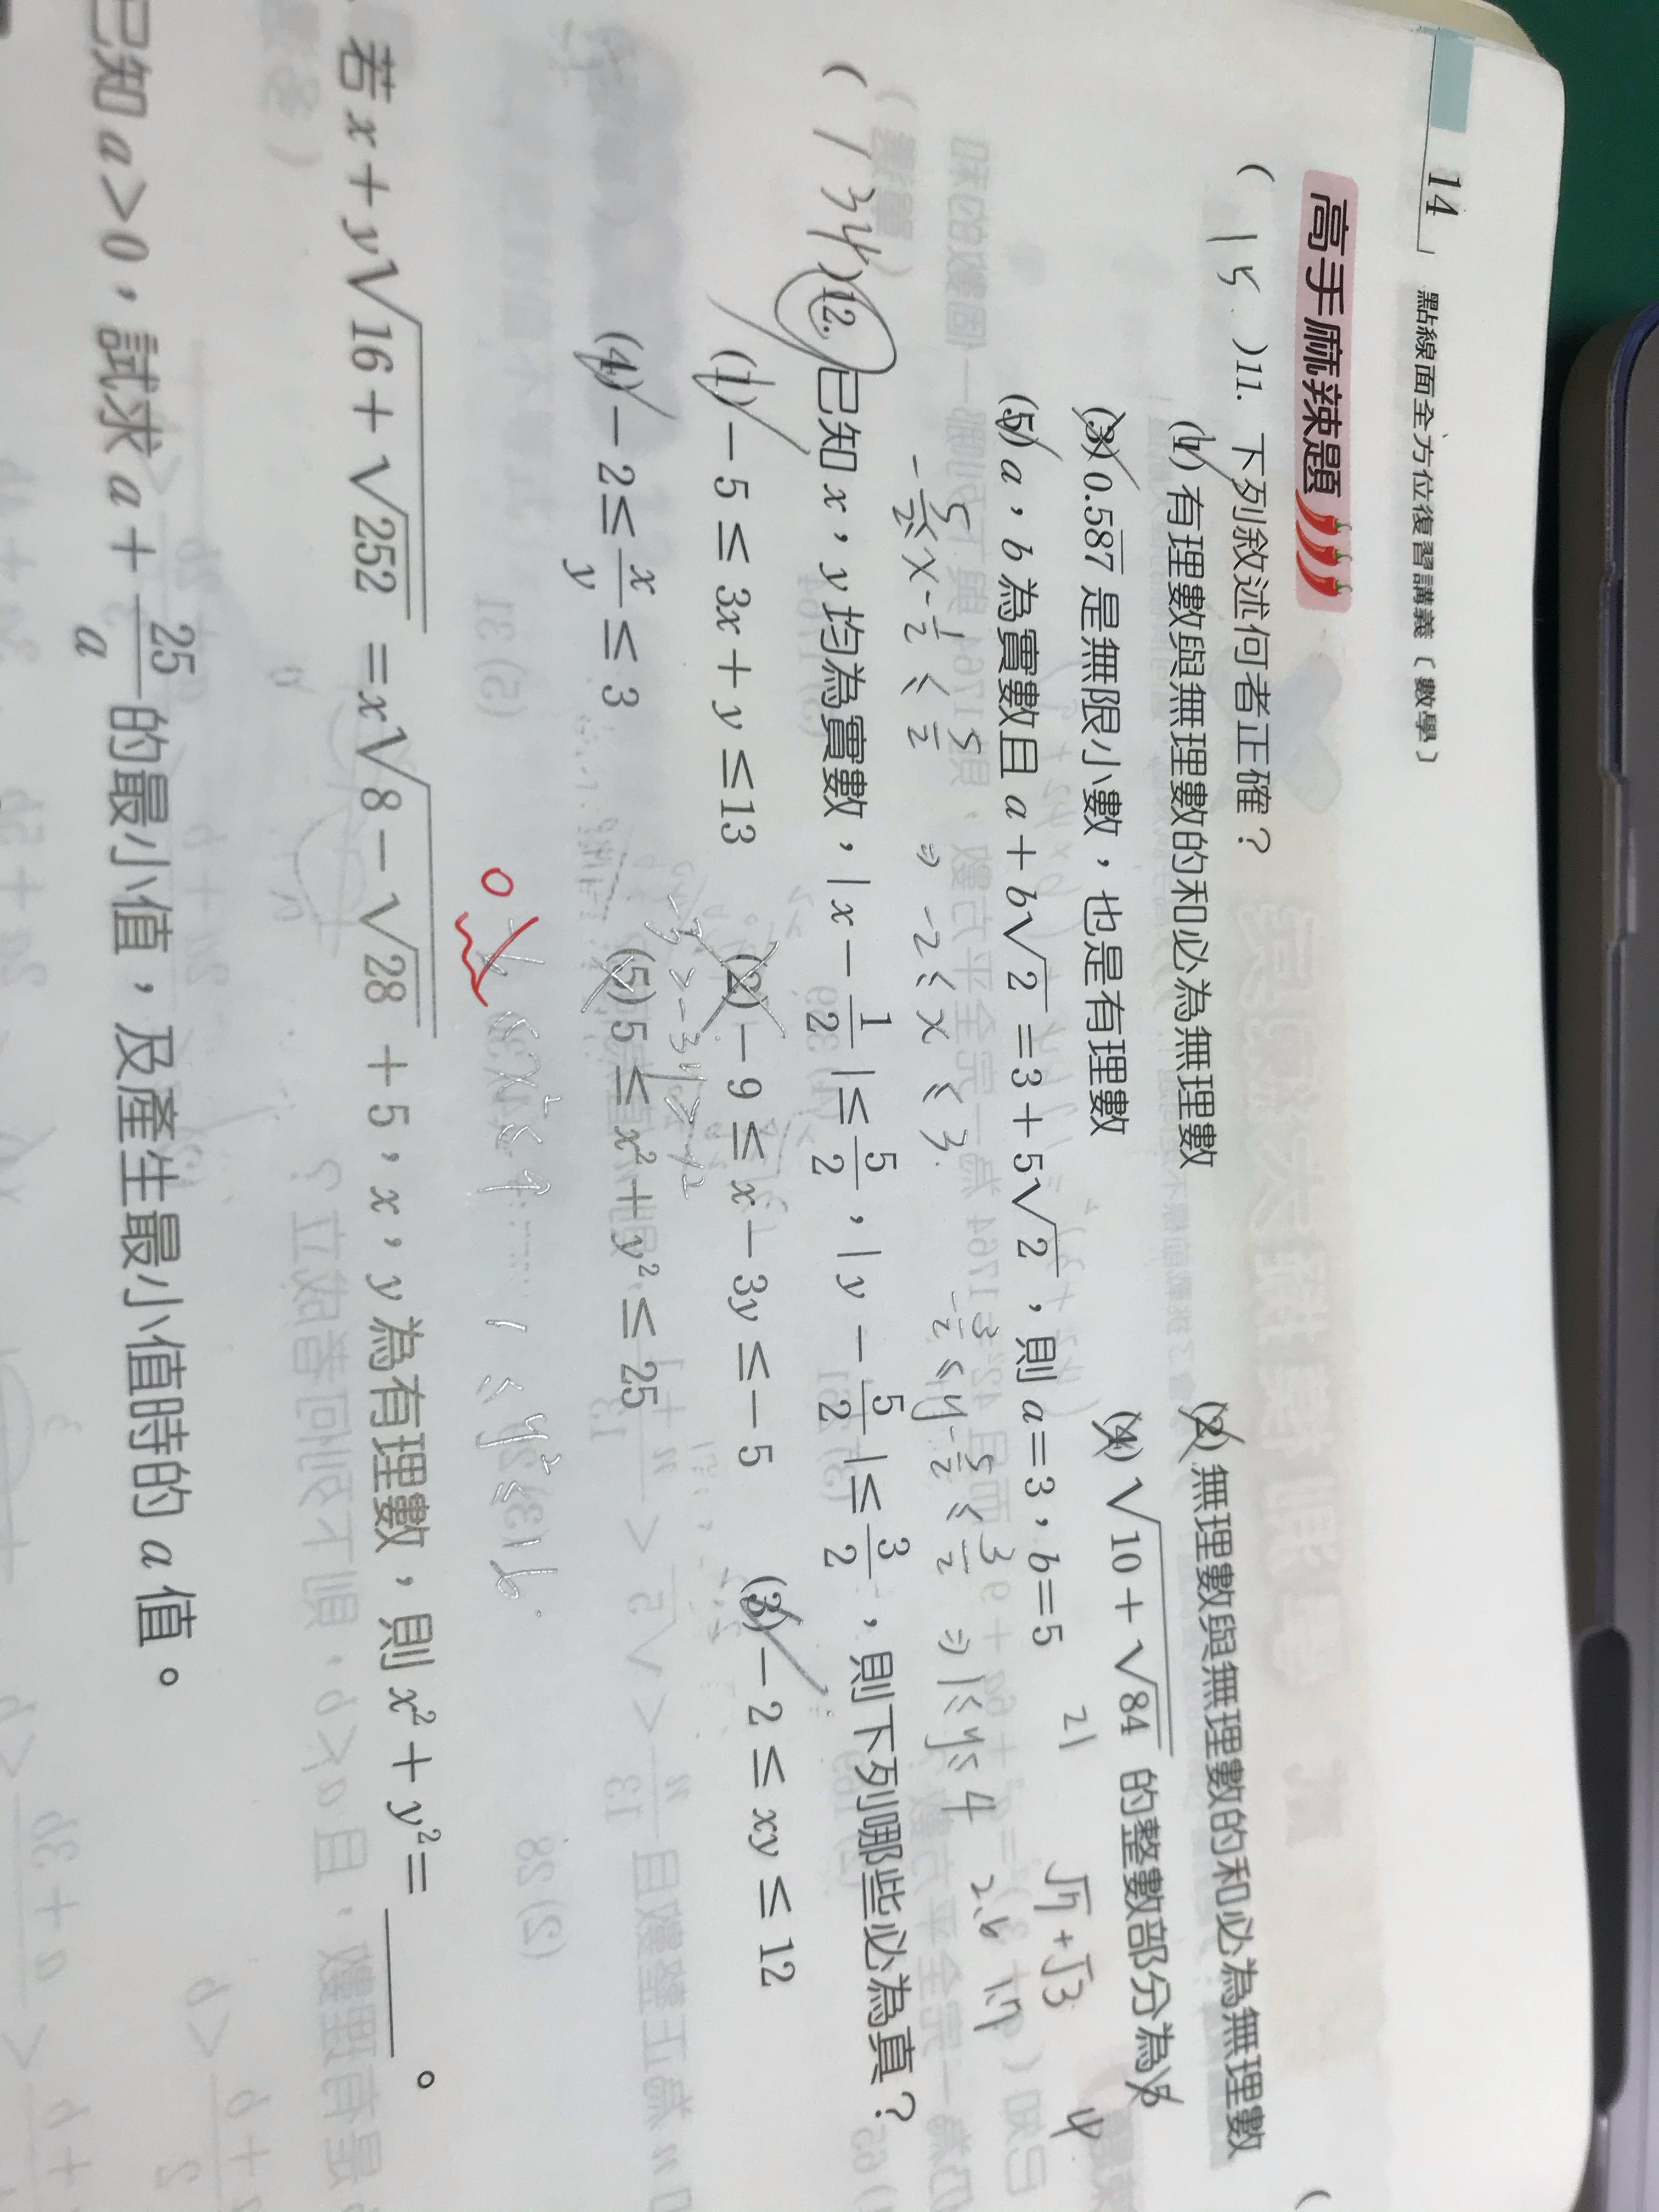 14 點線面全方位復習講義〔數學〕
高手麻辣題
( 15 )11. 下列敘述何者正確？
(1) 有理數與無理數的和必為無理數 (2) 無理數與無理數的和必為無理數
(3) 0.587 是無限小數，也是有理數 (4) √10+√84 的整數部分為5 4
(5) a，b 為實數且 a+b√2=3+5√2，則 a=3，b=5
21 √7+√3
2.6 1.7
-5/2≤x-1/2≤5/2 ⇒ -2≤x≤3. -3/2≤y-5/2≤3/2 ⇒ 1≤y≤4
( 134 )12. 已知 x，y 均為實數，|x-1/2|≤5/2，|y-5/2|≤3/2，則下列哪些必為真？
(1) -5≤3x+y≤13 (2) -9≤x-3y≤-5 (3) -2≤xy≤12
(4) -2≤x/y≤3 (5) 5≤x²+y²≤25
≤x²≤9 1≤y²≤16.
若 x+y√16+√252=x√8-√28+5，x，y 為有理數，則 x²+y²=＿＿。
已知 a>0，試求 a+25/a 的最小值，及產生最小值時的 a 值。